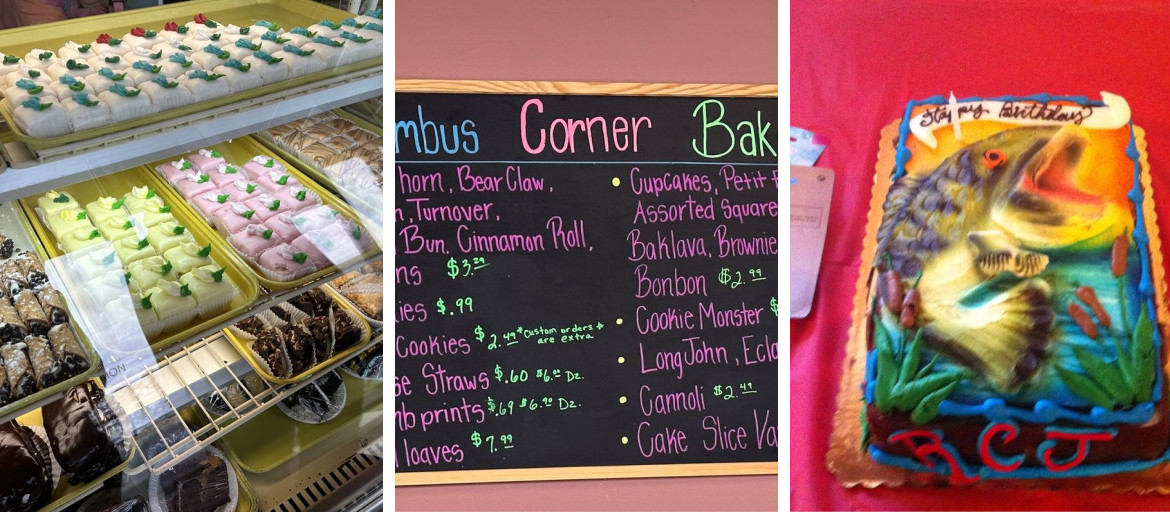 mbus Corner Bak
horn, Bear Claw,
n, Turnover,
Bun, Cinnamon Roll,
ns $3.29
ies $.99
Cookies $2.49 *Custom orders
are extra
se Straws $.60 $6.00 Dz.
mbprints $.69 $6.90 Dz.
loaves $7.99
Cupcakes, Petit f
Assorted Square
Baklava, Brownie
Bonbon $2.99
Cookie Monster $
Long John, Ecla
Cannoli $2.49
Cake Slice Va
Happy Birthday
RCJ